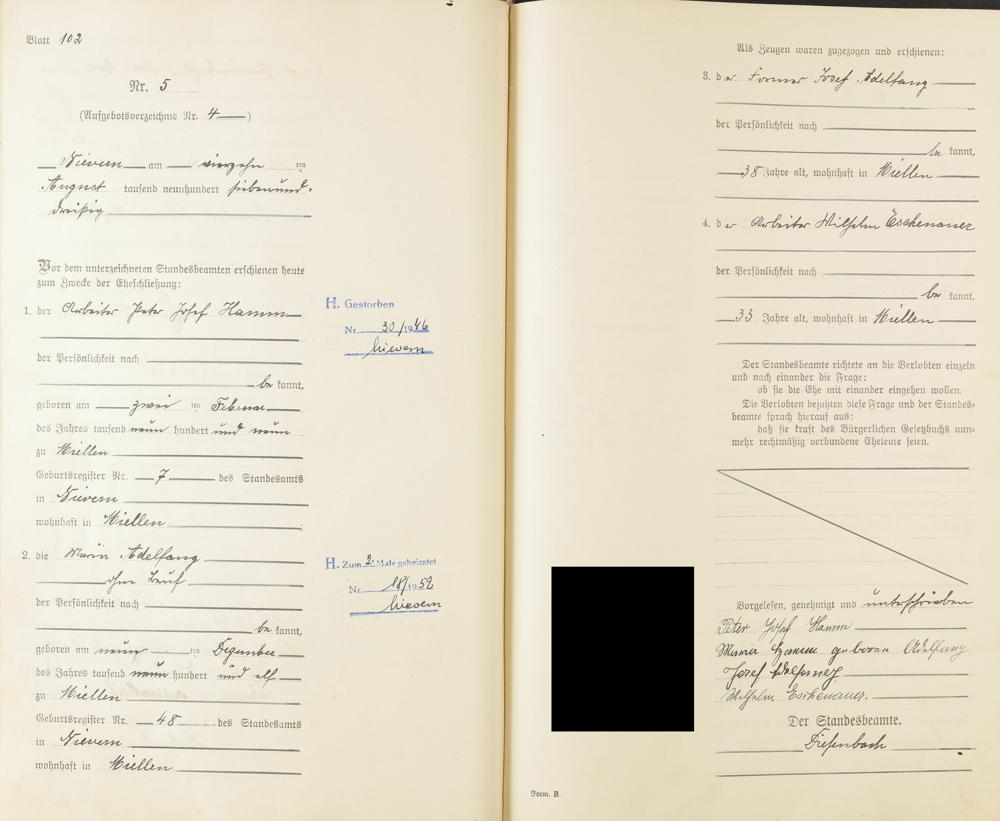 Blatt 102
Nr. 5
(Aufgebotsverzeichnis Nr. 4)
Nievern am vierzehn ten
August tausend neunhundert siebenund-
dreißig
Vor dem unterzeichneten Standesbeamten erschienen heute
zum Zwecke der Eheschließung:
1. der Arbeiter Peter Josef Hamm
der Persönlichkeit nach
be kannt,
geboren am zwei ten Februar
des Jahres tausend neun hundert und neun
zu Miellen
Geburtsregister Nr. 7 des Standesamts
in Nievern
wohnhaft in Miellen
H. Gestorben
Nr. 30/1946
Nievern
2. die Maria Adelfang
ohne Beruf
der Persönlichkeit nach
be kannt,
geboren am neun ten Dezember
des Jahres tausend neun hundert und elf
zu Miellen
Geburtsregister Nr. 48 des Standesamts
in Nievern
wohnhaft in Miellen
H. Zum 2. Male geheiratet
Nr. 18/1952
Nievern
Als Zeugen waren zugezogen und erschienen:
3. der Former Josef Adelfang
der Persönlichkeit nach
be kannt,
38 Jahre alt, wohnhaft in Miellen
4. der Arbeiter Wilhelm Eschenauer
der Persönlichkeit nach
be kannt,
33 Jahre alt, wohnhaft in Miellen
Der Standesbeamte richtete an die Verlobten einzeln
und nach einander die Frage:
ob sie die Ehe mit einander eingehen wollen.
Die Verlobten bejahten diese Frage und der Standes-
beamte sprach hierauf aus:
daß sie kraft des Bürgerlichen Gesetzbuchs nun-
mehr rechtmäßig verbundene Eheleute seien.
Vorgelesen, genehmigt und unterschrieben
Peter Josef Hamm
Maria Hamm geboren Adelfang
Josef Adelfang
Wilhelm Eschenauer.
Der Standesbeamte.
Diefenbach
Form. B.